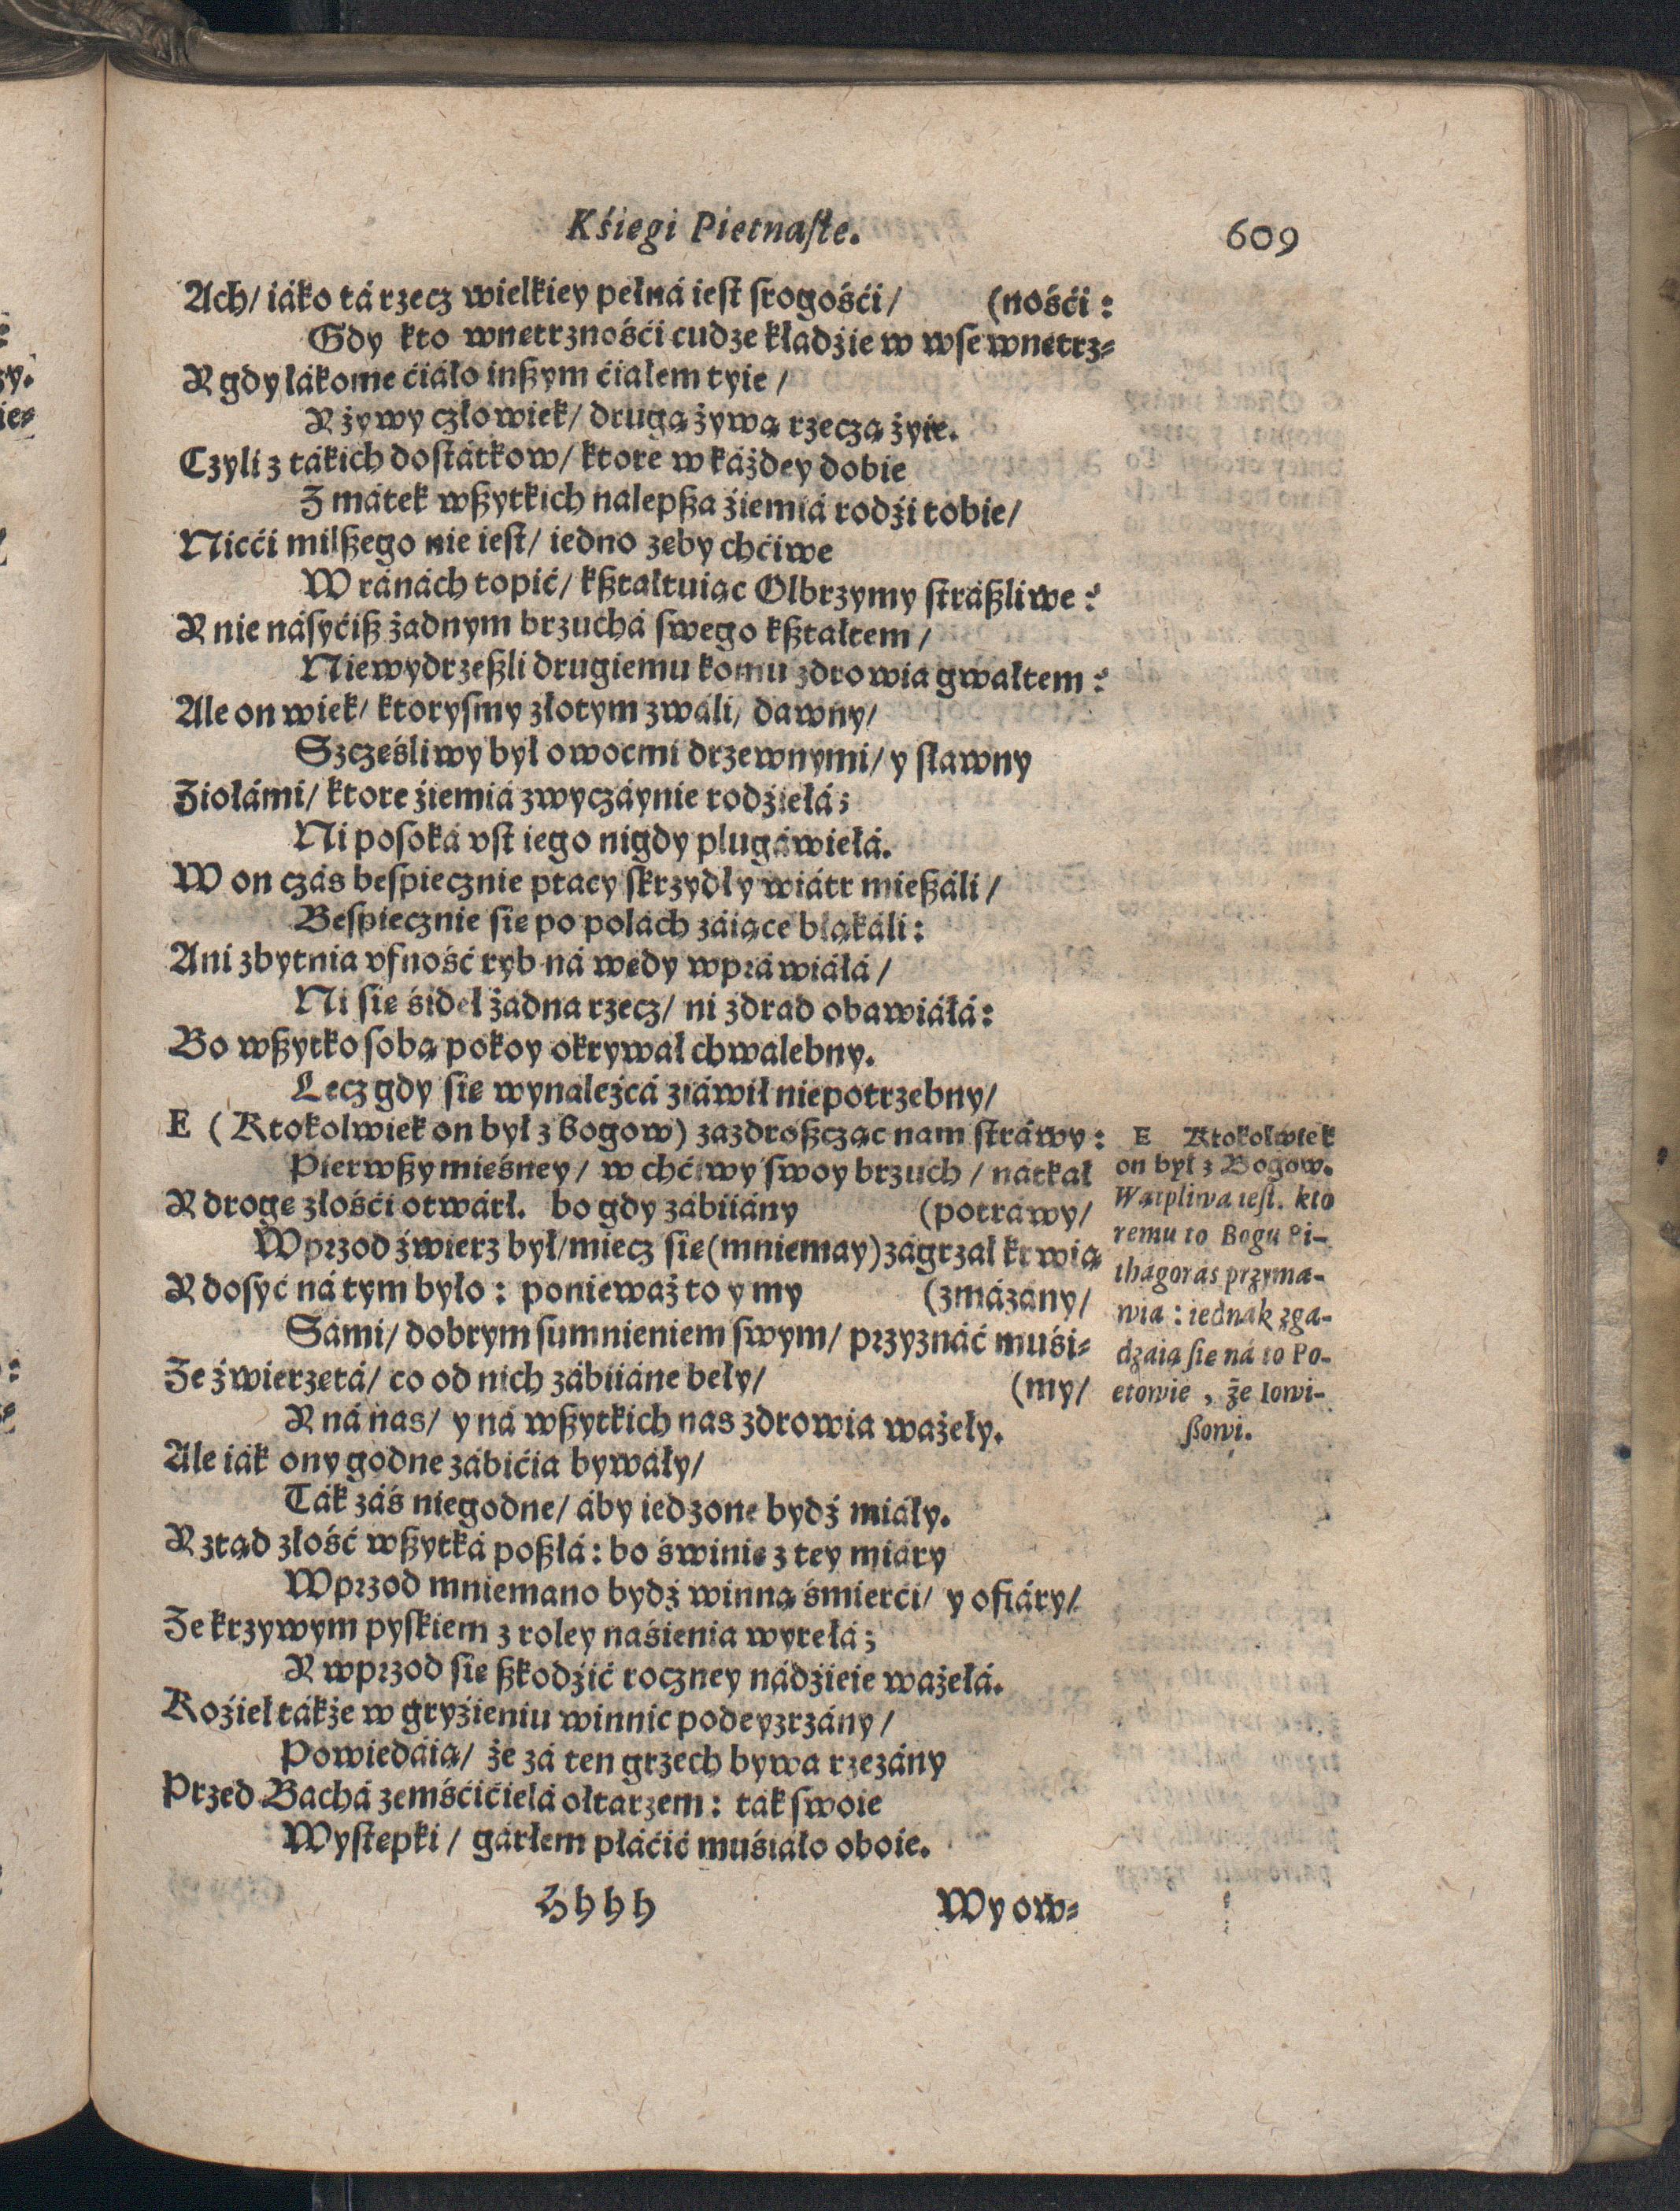 Kśiegi Pietnaſte.
609
Ach/ iáko tá rzecz wielkiey pełná ieſt ſrogośći/ (nośći:
Gdy kto wnetrznośći cudze kładźie w wſe wnetrz⸗
A gdy łákome ćiáło inßym ćiałem tyie/
A żywy człowiek/ drugą żywą rzeczą żyie.
Czyli z tákich doſtátkow/ ktore w káżdey dobie
Z mátek wßytkich nalepßa źiemiá rodźi tobie/
Nicći milßego nie ieſt/ iedno zeby chćiwe
W ránách topić/ kßtałtuiąc Olbrzymy ſtráßliwe:
A nie náſyćiß żadnym brzuchá ſwego kßtałtem/
Niewydrzeßli drugiemu komu zdrowia gwałtem:
Ale on wiek/ ktoryſmy złotym zwáli/ dawny/
Szcześliwy był owocmi drzewnymi/ y ſławny
Ziołámi/ ktore źiemiá zwyczáynie rodźiełá;
Ni poſoká vſt iego nigdy plugáwiełá.
W on czás beſpiecznie ptacy ſkrzydły wiátr mießáli/
Beſpiecznie ſie po polách záiące błąkáli:
Ani zbytnia vfność ryb ná wedy wpráwiáłá/
Ni ſie śideł żadna rzecz/ ni zdrad obawiáłá:
Bo wßytko ſobą pokoy okrywał chwalebny.
Lecz gdy ſie wynaleźcá ziáwił niepotrzebny/
E (Ktokolwiek on był z Bogow) zazdroßcząc nam ſtráwy:
Pierwßy mieśney/ w chćiwy ſwoy brzuch/ nátkał
A droge złośći otwárł. bo gdy zábiiány (potráwy/
Wprzod źwierz był/ miecz ſie (mniemay) zágrzał krwią
A doſyć ná tym było: ponieważ to y my (zmázány/
Sámi/ dobrym ſumnieniem ſwym/ przyznáć muśi⸗
Ze źwierzetá/ co od nich zábiiáne beły/ (my/
A ná nas/ y ná wßytkich nas zdrowia ważeły.
Ale iák ony godne zábićia bywáły/
Ták záś niegodne/ áby iedzone bydź miáły.
A ztąd złość wßytká poßłá: bo świnie z tey miáry
Wprzod mniemano bydź winną śmierći/ y ofiáry/
Ze krzywym pyſkiem z roley naśienia wyrełá;
A wprzod ſie ßkodźić roczney nádźieie ważełá.
Koźieł tákże w gryźieniu winnic podeyzrzány/
Powiedáią/ że zá ten grzech bywa rzezány
Przed Bachá zemśćićielá ołtarzem: ták ſwoie
Wyſtepki/ gárłem płáćić muśiáło oboie.
E Ktokolwiek
on był z Bogow.
Wątpliwa ieſt. kto
remu to Bogu Pi-
thágorás przyma-
wia: iednák zga-
dzáią ſie ná to Po-
etowie, że Iowi-
ßowi.
Hhhh
Wy ow⸗